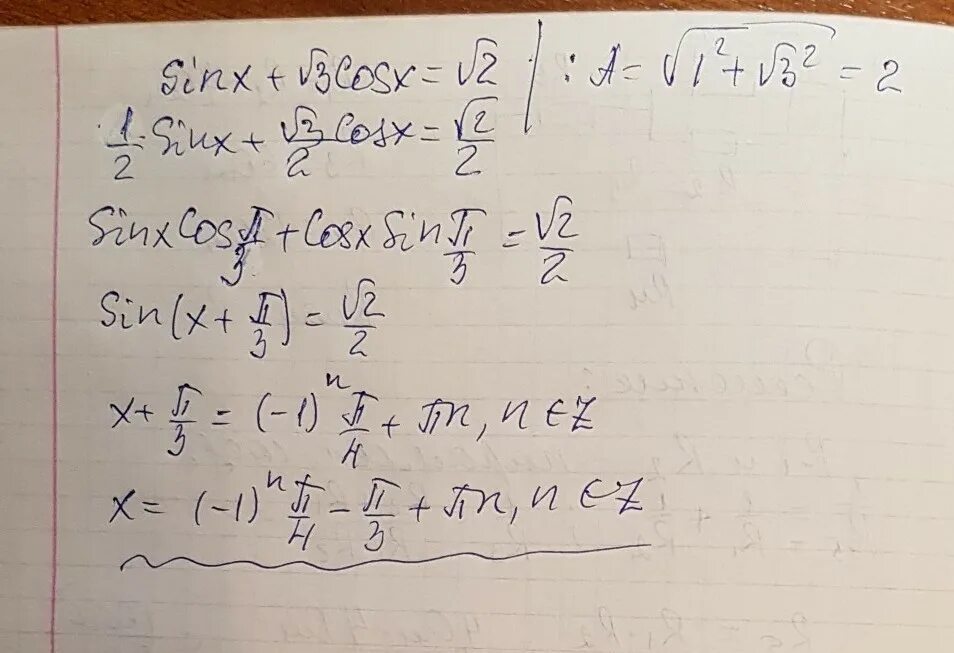 sinx + √3cosx = √2 | : A = √(1² + √3²) = 2
1/2 · sinx + √3/2 cosx = √2/2
sinx cos π/3 + cosx sin π/3 = √2/2
sin(x + π/3) = √2/2
x + π/3 = (-1)ⁿ π/4 + πn, n ∈ Z
x = (-1)ⁿ π/4 - π/3 + πn, n ∈ Z